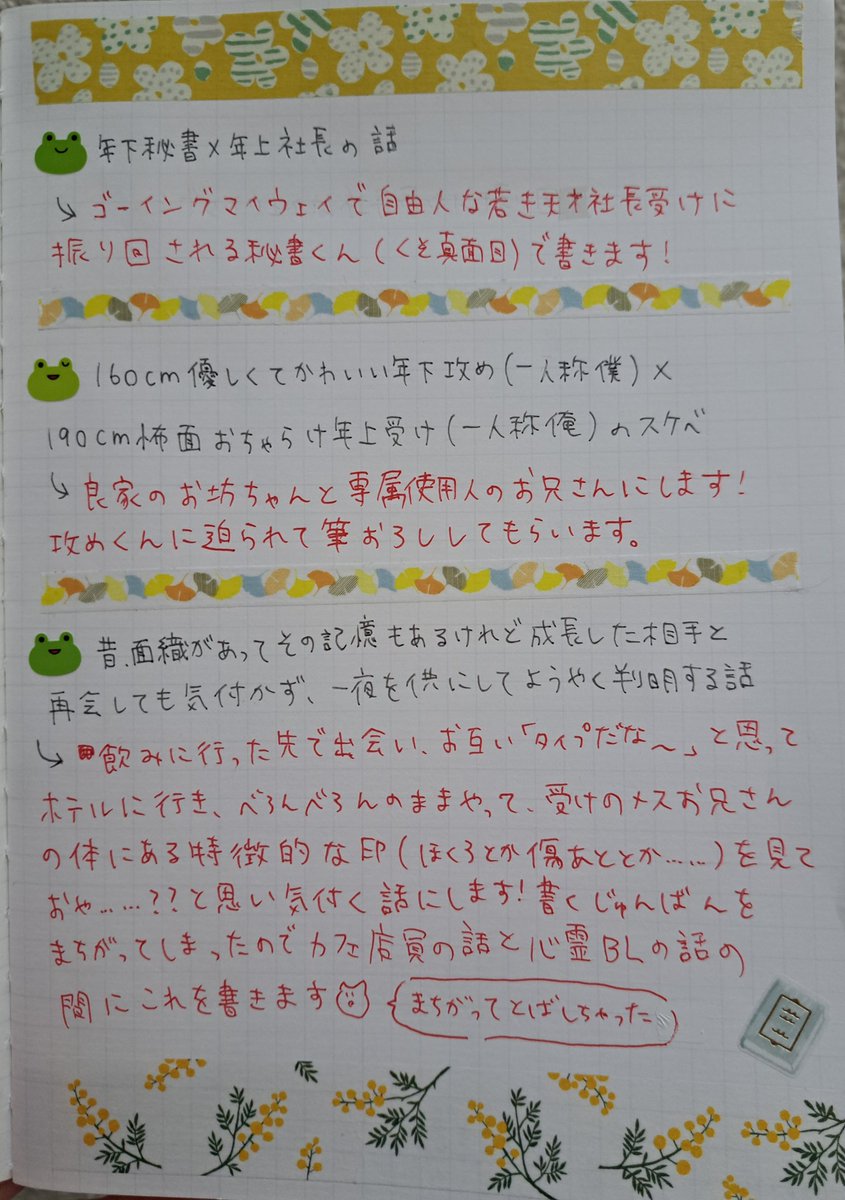 年下秘書×年上社長の話
↳ゴーイングマイウェイで自由人な若き天才社長受けに
振り回される秘書くん(くそ真面目)で書きます!
160cm優しくてかわいい年下攻め(一人称僕)×
190cm怖面おちゃらけ年上受け(一人称俺)のスケベ
↳良家のお坊ちゃんと専属使用人のお兄さんにします!
攻めくんに迫られて筆おろししてもらいます。
昔、面織があってその記憶もあるけれど成長した相手と
再会しても気付かず、一夜を供にしてようやく判明する話
↳飲みに行った先で出会い、お互い「タイプだな〜」と思って
ホテルに行き、べろんべろんのままやって、受けのメスお兄さん
の体にある特徴的な印(ほくろとか傷あととか……)を見て
おや……??と思い気付く話にします!書くじゅんばんを
まちがってしまったのでカフェ店員の話と心霊BLの話の
間にこれを書きます
まちがってとばしちゃった